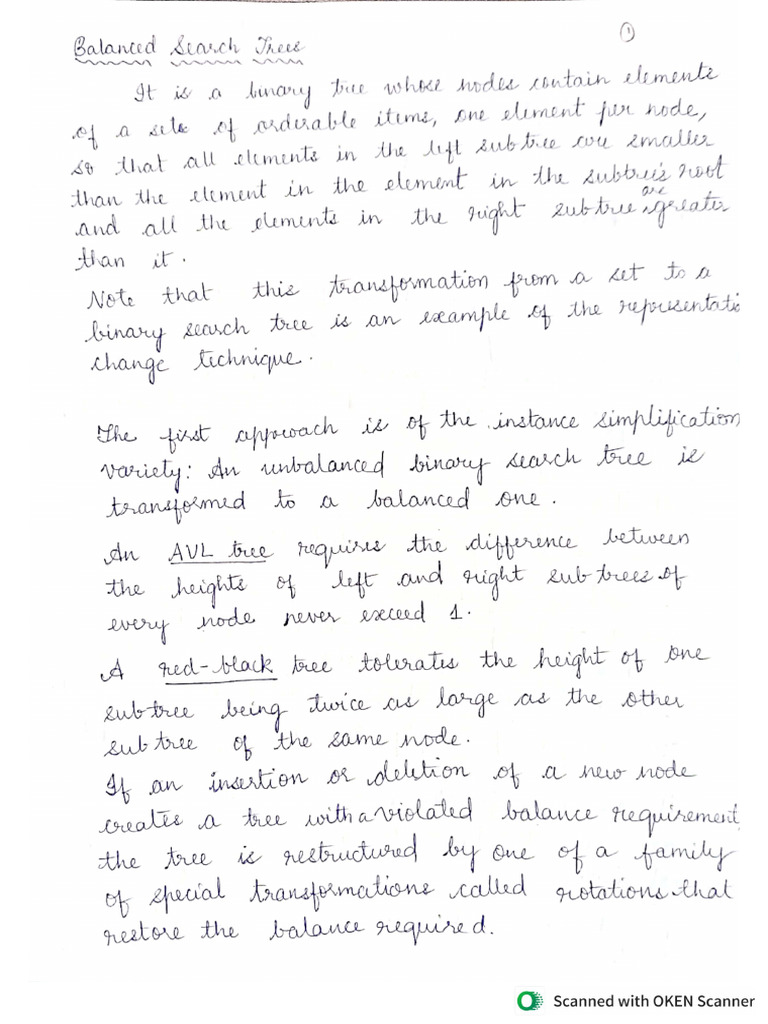 ①
Balanced Search Trees
It is a binary tree whose nodes contain elements
of a sets of orderable items, one element per node,
so that all elements in the left subtree are smaller
than the element in the element in the subtree's root
and all the elements in the right subtree are greater
than it.
Note that this transformation from a set to a
binary search tree is an example of the representatio
change technique.
The first approach is of the instance simplification
variety: An unbalanced binary search tree is
transformed to a balanced one.
An AVL tree requires the difference between
the heights of left and right subtrees of
every node never exceed 1.
A red-black tree tolerates the height of one
subtree being twice as large as the other
subtree of the same node.
If an insertion or deletion of a new node
creates a tree with a violated balance requirement
the tree is restructured by one of a family
of special transformations called rotations that
restore the balance required.
Scanned with OKEN Scanner